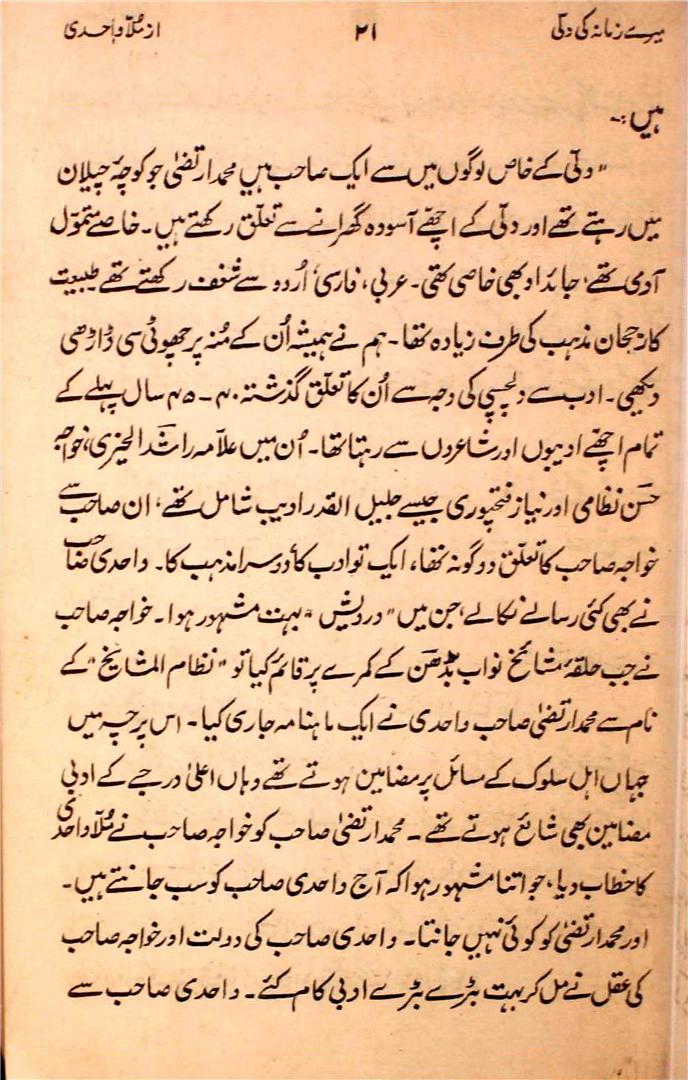 میرے زمانہ کی دلّی ۲۱ از مُلّا واحدی
ہیں :-
"دلّی کے خاص لوگوں میں سے ایک صاحب ہیں محمد ارتضیٰ جو کوچۂ چیلان
میں رہتے تھے اور دلّی کے اچھّے آسودہ گھرانے سے تعلّق رکھتے ہیں۔ خاصے متموّل
آدمی تھے، جائداد بھی خاصی تھی۔ عربی، فارسی، اُردو سے شغف رکھتے تھے طبیعت
کا رُجحان مذہب کی طرف زیادہ تھا۔ ہم نے ہمیشہ اُن کے مُنہ پر چھوٹی سی ڈاڑھی
دیکھی۔ ادب سے دلچسپی کی وجہ سے اُن کا تعلّق گذشتہ ۴۰-۴۵ سال پہلے کے
تمام اچھّے ادیبوں اور شاعروں سے رہتا تھا۔ اُن میں علاّمہ راشد الخیری، خواجہ
حسن نظامی اور نیاز فتحپوری جیسے جلیل القدر ادیب شامل تھے، ان صاحب سے
خواجہ صاحب کا تعلّق دو گونہ تھا، ایک تو ادب کا دوسرا مذہب کا۔ واحدی صاحب
نے بھی کئی رسالے نکالے، جن میں "درویش" بہت مشہور ہوا۔ خواجہ صاحب
نے جب حلقۂ مشائخ نواب بڈھن کے کمرے پر قائم کیا تو "نظام المشایخ" کے
نام سے محمد ارتضیٰ صاحب واحدی نے ایک ماہنامہ جاری کیا۔ اس پرچہ میں
جہاں اہل سلوک کے مسائل پر مضامین ہوتے تھے وہاں اعلیٰ درجے کے ادبی
مضامین بھی شائع ہوتے تھے۔ محمد ارتضیٰ صاحب کو خواجہ صاحب نے مُلّا واحدی
کا خطاب دیا، جو اتنا مشہور ہوا کہ آج واحدی صاحب کو سب جانتے ہیں۔
اور محمد ارتضیٰ کو کوئی نہیں جانتا۔ واحدی صاحب کی دولت اور خواجہ صاحب
کی عقل نے مل کر بہت بڑے بڑے ادبی کام کئے۔ واحدی صاحب سے